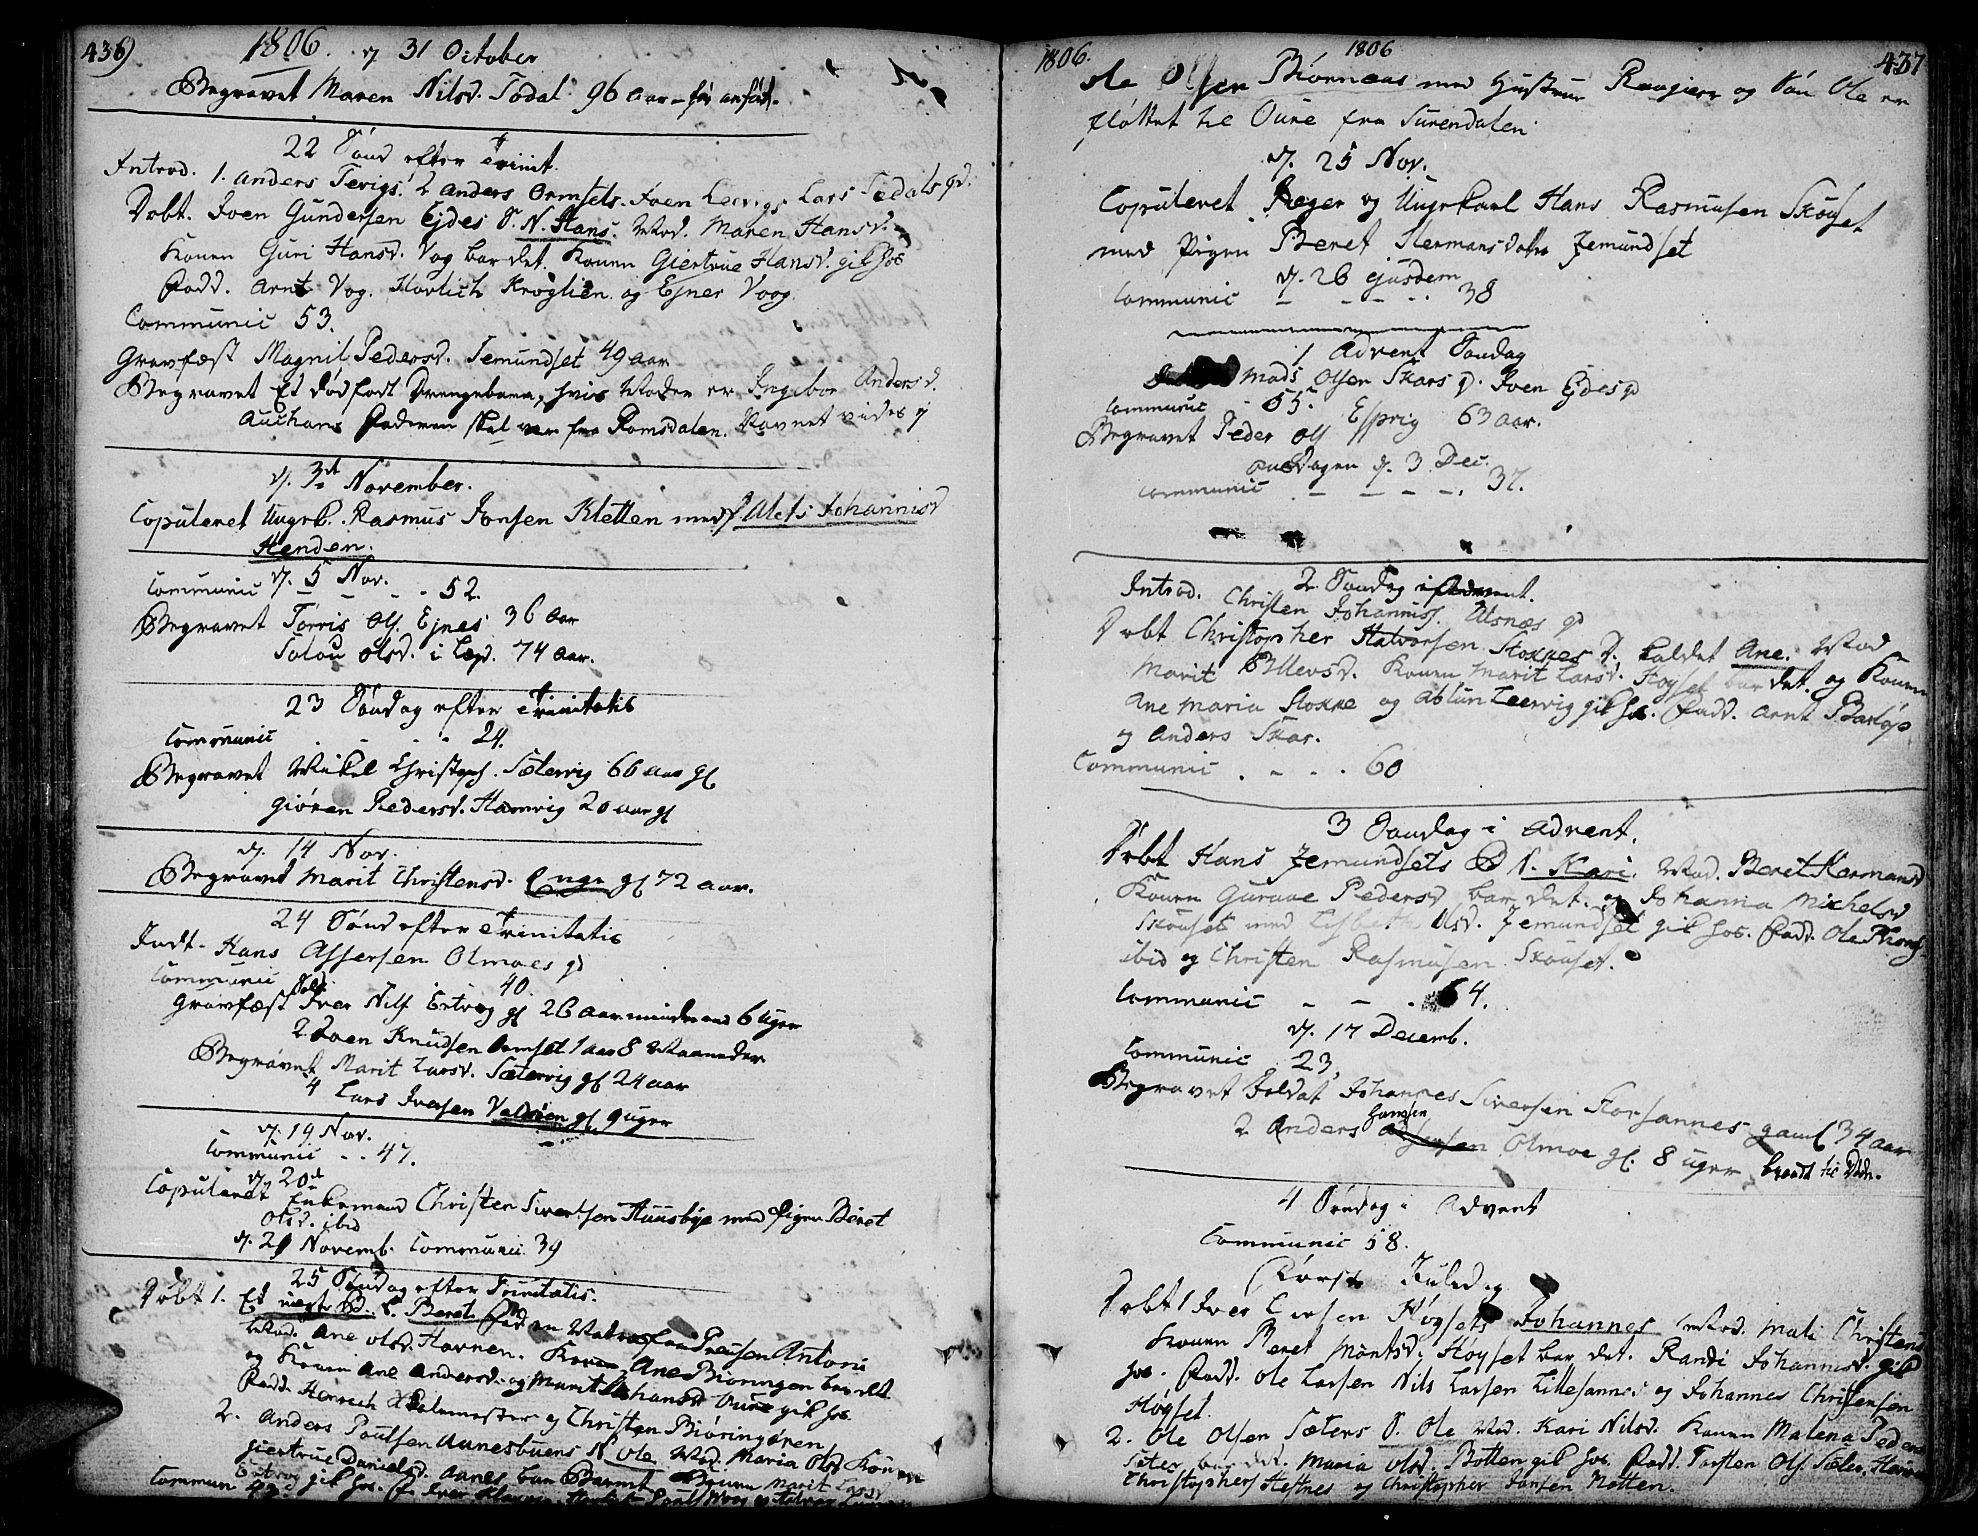 436) 1806. d. 31 October
Begravet Maren Nilsd. Todal 96 Aar - før anført.
22 Sönd efter Trinit.
Introd. 1. Anders Tervigs. 2 Anders Ormsets. Iven Leervigs Lars Todals qv.
Döbt. Iven Gundersen Ejdes S. N. Hans. Mod. Maren Hansd.
Konen Guri Hansd. Vog bar det. Konen Giertrue Hansd. gik hos
Fadd. Arnt Vog. Havtich Kroglien og Ejner Voog.
Communic 53.
Gravfæst Magnil Pedersd. Jemundset 49 Aar
Begravet Et dödfödt Drengebarn, hvis Moder er Ingebor Andersd.
Auchans Faderen skal være fra Romsdalen. Navnet vides ej
d. 3de November.
Copuleret Ungk. Rasmus Jonsen Kletten med P. Alets Johannisd
Henden.
d. 5 Nov.
Communic - - - - 52.
Begravet Torris Ols. Ejnes 36 Aar
Solou Olsd. i Lægd. 74 Aar.
23 Söndag efter Trinitatis
Communic - - - 24.
Begravet Mikel Christoph. Sætervig 66 Aar gl
Giören Pedersd. Hamvig 20 aar gl
d. 14 Nov.
Begravet Marit Christensd. Enge gl 72 Aar.
24 Sönd efter Trinitatis
Indt. Hans Assersen Olmoes qv
Communic 40.
Gravfæst Sold. Iver Nils Ertvog gl 26 Aar mindre end 6 Uger
2. Iven Knudsen Ormset 1 aar 8 Maaneder
Begravet Marit Larsd. Sætervig gl 24 aar
4 Lars Iversen Valsöen gl 9 uger
d. 19 Nov.
Communic - - 47.
d. 20de
Copuleret Enkemand Christen Sivertsen Huusbye med Pigen Beret
Olsd. ibid
d. 21 Novemb. Communic 39
25 Söndag efter Trinitatis.
Döbt 1. Et uægte B. k. Beret Fad en Matros fra Preusen Antoni
Mod. Ane Olsd. Havnen. Konen Ane Biöringen bar det
og Konen Ane Andersd. og Marit Johansd Oure gik hos.
Fadd. Henrich Skolemester og Christen Biöringören
2. Anders Poulsen Aunesbuens N. Ole Mod. Maria Olsd Konen
Giertrue Danielsd. Aunes bar Barnet Marit Larsd
Ertvog gik hos. Fad. Iver
Commun 42
1806. 1806 437
Ole Olsen Biörnaas med Hustrue Ragnier og Sön Ole er
flöttet til Oure fra Surendalen
d. 25 Nov.
Copuleret Jæger og Ungekarl Hans Rasmusen Skouset
med Pigen Beret Hermansdatter Jemundset
d. 26 ejusdem
Communic - - - - 38
1 Advent Söndag
Mads Olsen Skars q. Iven Ejdes q
Communic - 55.
Begravet Peder Ols Espvig 63 Aar.
Onsdagen d. 3. Dec.
Communic - - - - 37.
2. Söndag i Advent.
Introd. Christen Johanniss. Ulsnæs q
Döbt Christopher Halvorsen Stokkes D. kaldet Ane. Mod
Marit Ellevsd. Konen Marit Larsd. Foyset bar det. og Konen
Ane Maria Stokke og Ablun Leervig gik hos. Fadd. Arnt
og Anders Skar.
Communic - - - - 60
3 Söndag i Advent.
Döbt Hans Jemundsets D N. Kari. Mod. Beret Hermansd
Konen Guraae Pedersd bar det. og Johanna Michelsd
Skouset med Lisbeth Olsd. Jemundset gik hos. Fadd. Ole
ibid og Christen Rasmusen Skouset.
Communic - - - 64.
d. 17 Decemb.
Communic 23,
Begravet Soldat Johannes Siversen Korsannes gaml 34 aar
2 Anders Hansen Olmoe gl. 8 uger brændt til Döde.
4 Söndag i Advent
Communic 58.
Förste Juledag
Döbt 1 Iver Larsen Høysets Johannes Mod. Mali Christens
Konen Beret Montsd. Høyset bar det. Randi Johannisd. gik
hos. Fadd. Ole Larsen Nils Larsen Lillesannes og Johannes Christensen
Høyset.
2. Ole Olsen Sæters S. Ole Mod. Kari Nilsd. Konen Malena Peders
Sæter bar det. Maria Olsd. Botten gik hos. Fadd. Torsten Ols Sæter,
Christophers Hestnes og Christopher Jonsen Notten.